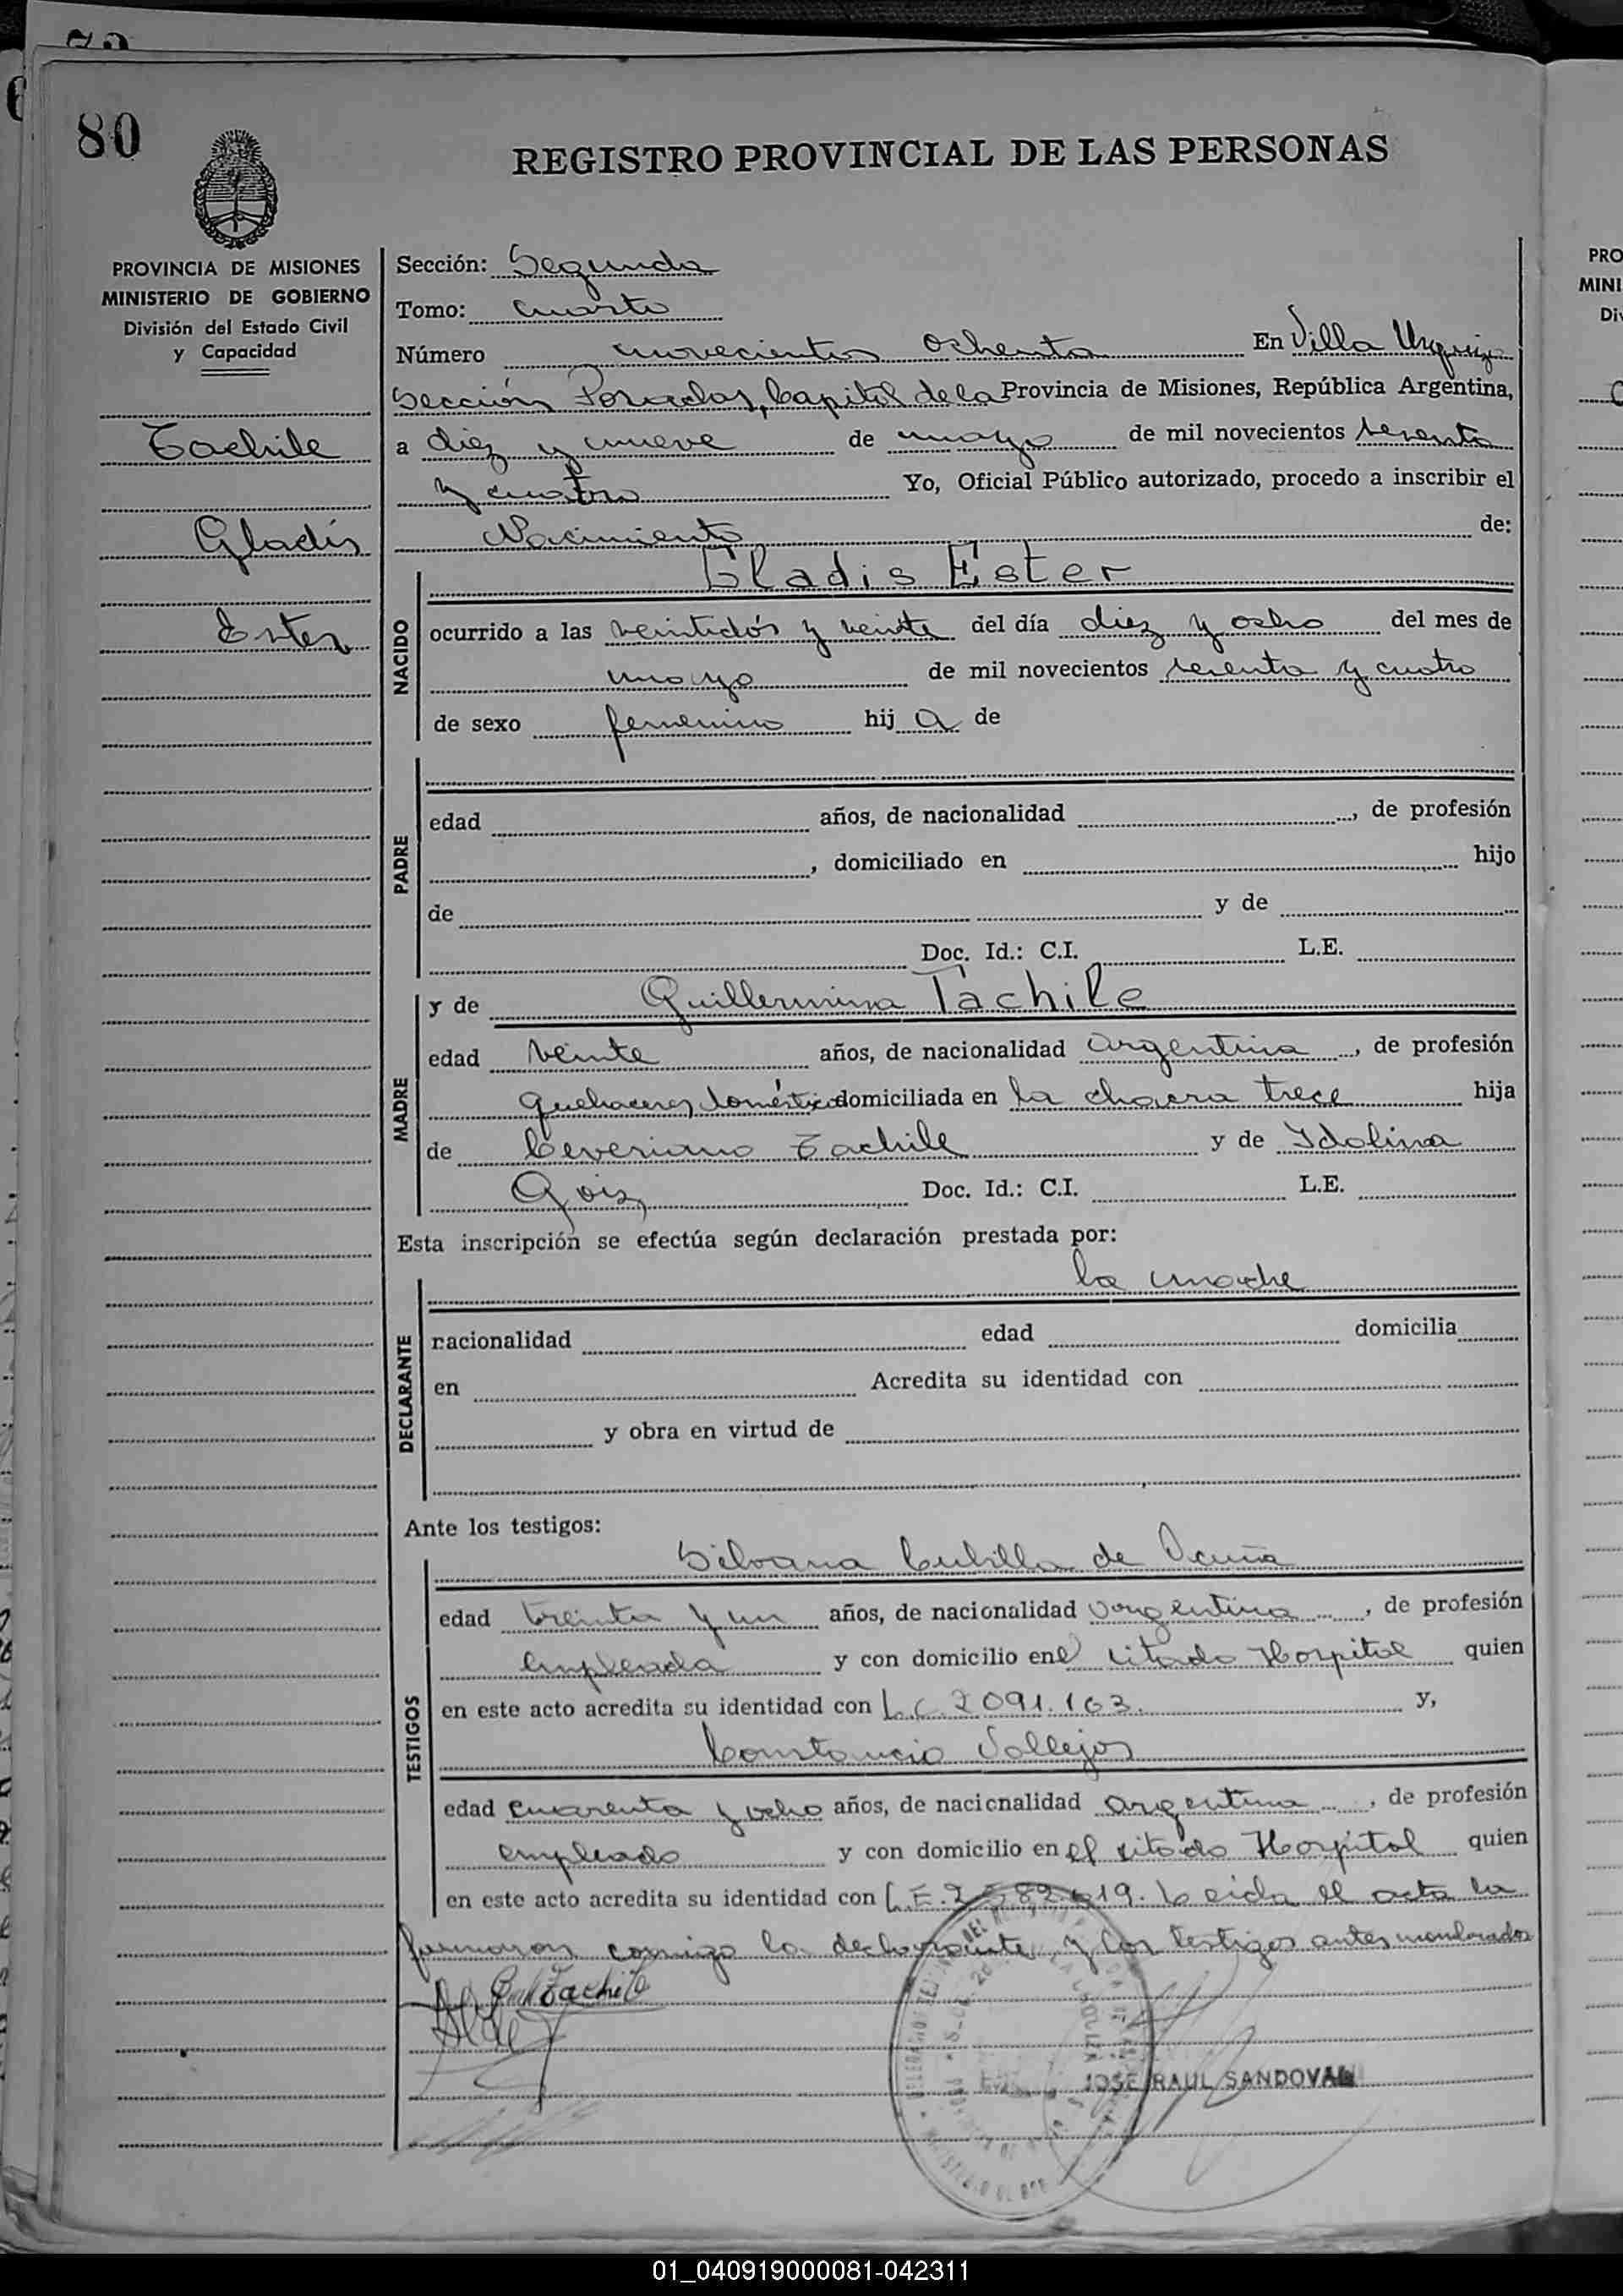 80
REGISTRO PROVINCIAL DE LAS PERSONAS
PROVINCIA DE MISIONES
MINISTERIO DE GOBIERNO
División del Estado Civil
y Capacidad
Tachile
Gladis
Ester
Sección: Segunda
Tomo: Cuarto
Número novecientos ochenta En Villa Urquiza
Sección Posadas, Capital de la Provincia de Misiones, República Argentina,
a diez y nueve de mayo de mil novecientos
y cuatro Yo, Oficial Público autorizado, procedo a inscribir el
Nacimiento de:
NACIDO
Gladis Ester
ocurrido a las veintidós y veinte del día diez y ocho del mes de
mayo de mil novecientos y cuatro
de sexo femenino hija de
PADRE
edad años, de nacionalidad , de profesión
, domiciliado en hijo
de y de
Doc. Id.: C.I. L.E.
MADRE
y de Guillermina Tachile
edad veinte años, de nacionalidad argentina, de profesión
quehaceres domésticos domiciliada en la chacra trece hija
de Ceveriano Tachile y de Idolina
Doc. Id.: C.I. L.E.
Esta inscripción se efectúa según declaración prestada por:
la madre
DECLARANTE
nacionalidad edad domicilia
en Acredita su identidad con
y obra en virtud de
Ante los testigos:
TESTIGOS
Silvana Cubilla de Acuña
edad treinta y un años, de nacionalidad argentina, de profesión
empleada y con domicilio en el citado Hospital quien
en este acto acredita su identidad con L.C. 2091.163. y,
Constancio Vallejos
edad cuarenta y ocho años, de nacionalidad argentina, de profesión
empleado y con domicilio en el citado Hospital quien
en este acto acredita su identidad con L.E. Leida el acta la
firmaron conmigo la declarante y los testigos antes nombrados
Tachile
JOSE RAUL SANDOVAL
PRO
MINI
Div
01_040919000081-042311